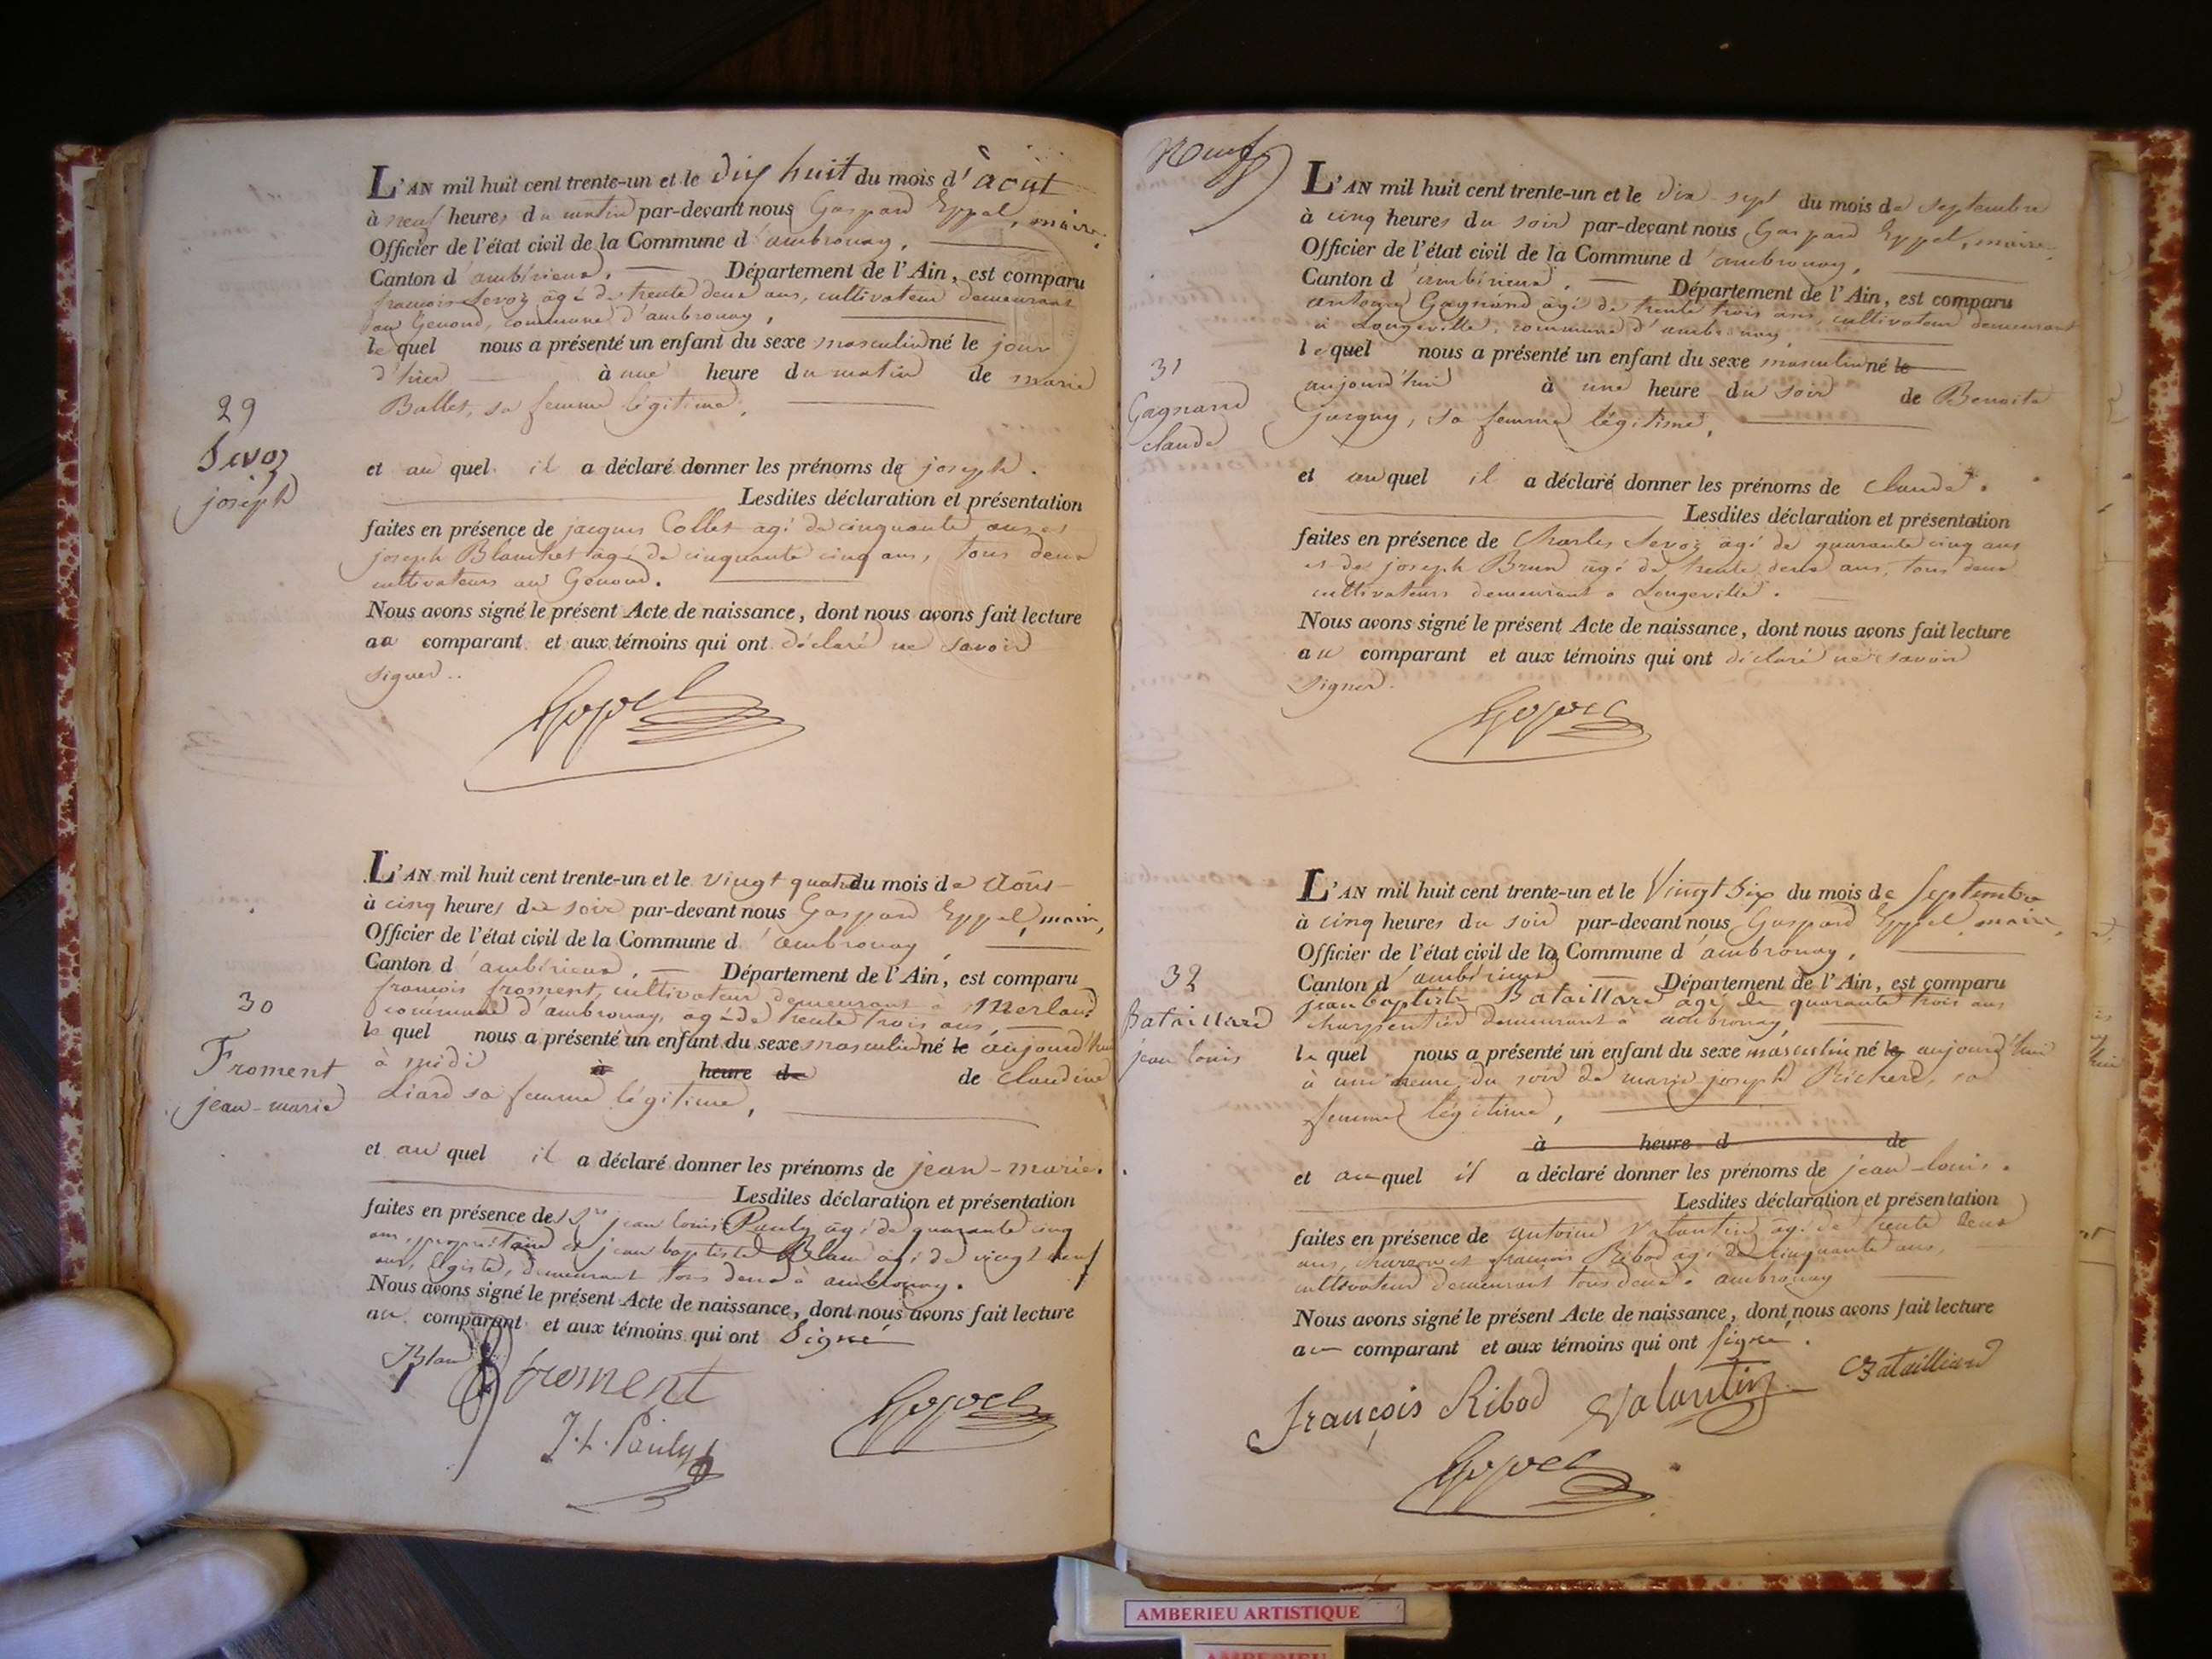 L'AN mil huit cent trente-un et le dix huit du mois d'août
à neuf heures du matin par-devant nous Gaspard Eppel, maire,
Officier de l'état civil de la Commune d'ambronay,
Canton d'ambérieux, Département de l'Ain, est comparu
françois Sevoz âgé de trente deux ans, cultivateur demeurant
au Genoud, commune d'ambronay,
le quel nous a présenté un enfant du sexe masculin né le jour
d'hier à une heure du matin de marie
Ballet, sa femme légitime,
29
Sevoz
joseph
et au quel il a déclaré donner les prénoms de joseph.
Lesdites déclaration et présentation
faites en présence de jacques Collet âgé de cinquante ans et
joseph Blanchet âgé de cinquante cinq ans, tous deux
cultivateurs au Genoud.
Nous avons signé le présent Acte de naissance, dont nous avons fait lecture
au comparant et aux témoins qui ont déclaré ne savoir
signer.
Eppel
L'AN mil huit cent trente-un et le vingt quatre du mois de Août
à cinq heures du soir par-devant nous Gaspard Eppel, maire,
Officier de l'état civil de la Commune d'ambronay,
Canton d'ambérieux, Département de l'Ain, est comparu
françois froment, cultivateur demeurant à Merland
commune d'ambronay, agé de trente trois ans,
le quel nous a présenté un enfant du sexe masculin né le aujourd'hui
à midi à heure de de Claudine
Liard sa femme légitime,
30
Froment
jean-marie
et au quel il a déclaré donner les prénoms de jean-marie.
Lesdites déclaration et présentation
faites en présence de Srs jean louis Pauly âgé de quarante cinq
ans, propriétaire et jean baptiste Blanc âgé de vingt neuf
ans, légiste, demeurant tous deux à ambronay.
Nous avons signé le présent Acte de naissance, dont nous avons fait lecture
au comparant et aux témoins qui ont Signé
Blanc froment
J. L. Pauly Eppel
Neuf
L'AN mil huit cent trente-un et le dix-sept du mois de septembre
à cinq heures du soir par-devant nous Gaspard Eppel, maire,
Officier de l'état civil de la Commune d'ambronay,
Canton d'ambérieux, Département de l'Ain, est comparu
antoine Gagnand âgé de trente trois ans, cultivateur demeurant
à Longeville, commune d'ambronay,
le quel nous a présenté un enfant du sexe masculin né le
aujourd'hui à une heure du soir de Benoite
jurguy, sa femme légitime,
31
Gagnand
claude
et au quel il a déclaré donner les prénoms de Claude.
Lesdites déclaration et présentation
faites en présence de Charles Sevoz âgé de quarante cinq ans
et de joseph Brun âgé de trente deux ans, tous deux
cultivateurs demeurant à Longeville.
Nous avons signé le présent Acte de naissance, dont nous avons fait lecture
au comparant et aux témoins qui ont déclaré ne savoir
signer.
Eppel
L'AN mil huit cent trente-un et le Vingt Six du mois de Septembre
à cinq heures du soir par-devant nous Gaspard Eppel, maire,
Officier de l'état civil de la Commune d'ambronay,
Canton d'ambérieux Département de l'Ain, est comparu
jean baptiste Bataillard agé de quarante trois ans
charpentier demeurant à ambronay,
le quel nous a présenté un enfant du sexe masculin né le aujourd'hui
à une heure du soir de marie joseph Richerd, sa
femme légitime,
à heure d de
32
Bataillard
jean louis
et au quel il a déclaré donner les prénoms de jean-louis.
Lesdites déclaration et présentation
faites en présence de antoine Valantin âgé de trente deux
ans, charron et françois Ribod âgé de cinquante ans,
cultivateur demeurant tous deux à ambronay
Nous avons signé le présent Acte de naissance, dont nous avons fait lecture
au comparant et aux témoins qui ont signé.
françois Ribod Valantin Bataillard
Eppel
AMBERIEU ARTISTIQUE
AMBERIEU